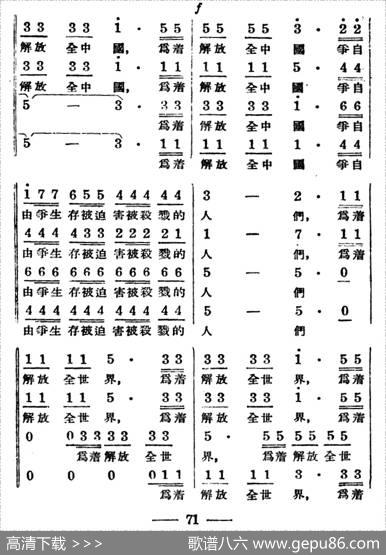 f
3 3 3 3 1 · 5 5 5 5 5 5 3 · 2 2
解放 全中 國, 爲着 解放 全中 國 爭自
3 3 3 3 1 · 1 1 1 1 1 1 5 · 4 4
解放 全中 國, 爲着 解放 全中 國 爭自
5 — 3 · 3 3 3 3 3 3 1 · 6 6
爲着 解放 全中 國 爭自
5 — 3 · 1 1 1 1 1 1 1 · 4 4
爲着 解放 全中 國 爭自
1 7 7 6 5 5 4 4 4 4 4 3 — 2 · 1 1
由爭生 存被迫 害被殺 戮的 人 們, 爲着
4 4 4 4 3 3 2 2 2 2 1 1 — 7 · 1 1
由爭生 存被迫 害被殺 戮的 人 們, 爲着
6 6 6 6 6 6 6 6 6 6 6 5 — 5 · 0
由爭生 存被迫 害被殺 戮的 人 們
4 4 4 4 4 4 4 4 4 4 4 5 — 5 · 0
由爭生 存被迫 害被殺 戮的 人 們
1 1 1 1 5 · 3 3 3 3 3 3 1 · 5 5
解放 全世 界, 爲着 解放 全世 界, 爲着
1 1 1 1 5 · 3 3 3 3 3 3 1 · 5 5
解放 全世 界, 爲着 解放 全世 界, 爲着
0 0 3 3 3 3 3 3 5 · 5 5 5 5 5 5
爲着 解放 全世 界, 爲着 解放 全世
0 0 0 0 1 1 1 1 1 1 3 · 3 3
爲着 解放 全世 界, 爲着
— 71 —
高清下载 >>> 歌谱八六 www.gepu86.com